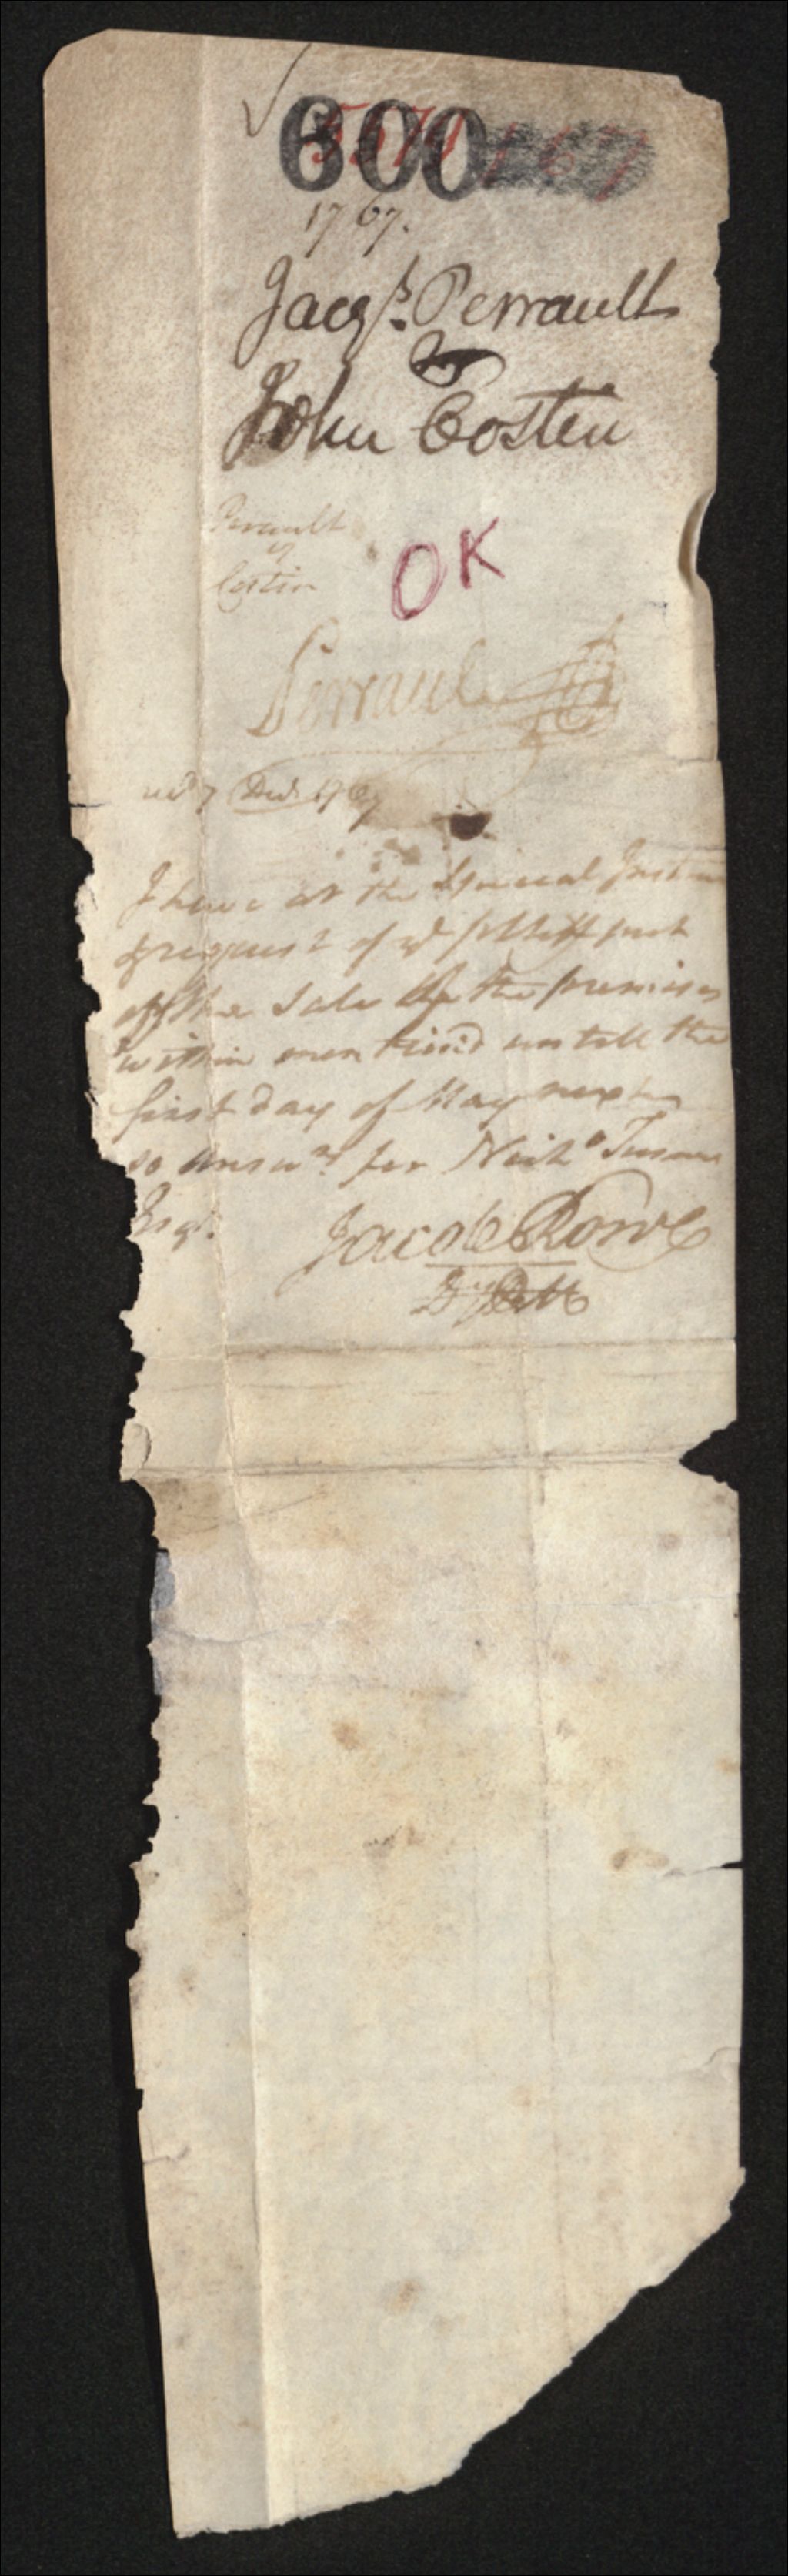 600
1767.
Jacqs. Perrault
vs
John Costen
Perrault
vs
Costin
OK
Perrault
7 Decr. 1767
I have at the Special Instan
& request of ye pltiff put
off the Sale of the premises
within mentiond untill the
first day of May next
so answrs. for Nichs Turner
Esqr.
Jacob Rowe